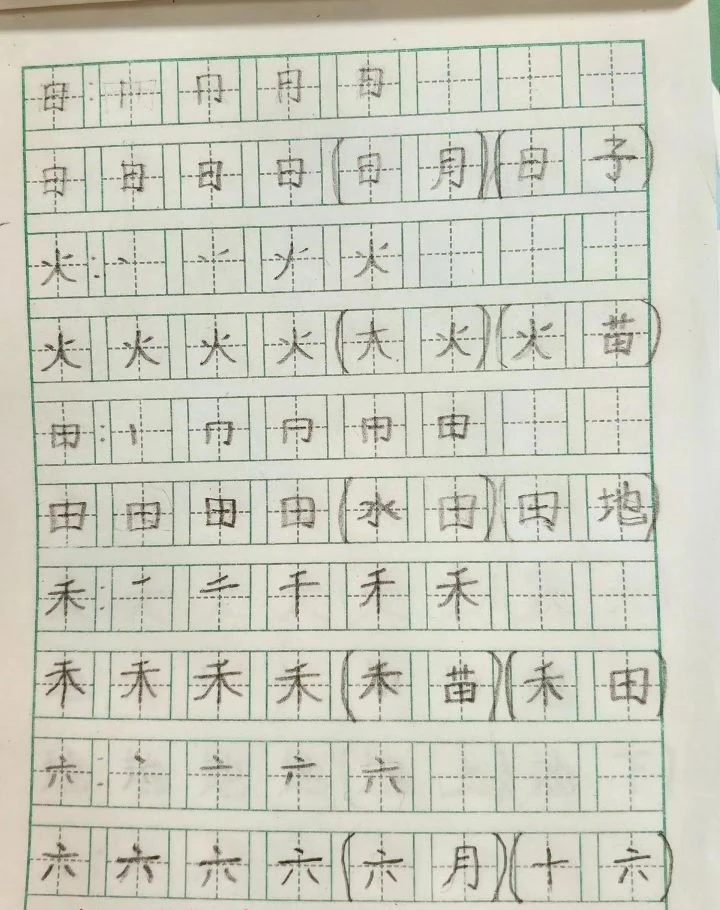 日：丨 冂 冃 日
日 日 日 日 （日 月）（日 子）
火：丶 丷 火
火 火 火 火 （大 火）（火 苗）
田：丨 冂 田
田 田 田 田 （水 田）（田 地）
禾：一 二 千 禾 禾
禾 禾 禾 禾 （禾 苗）（禾 田）
六：丶 亠 六
六 六 六 六 （六 月）（十 六）